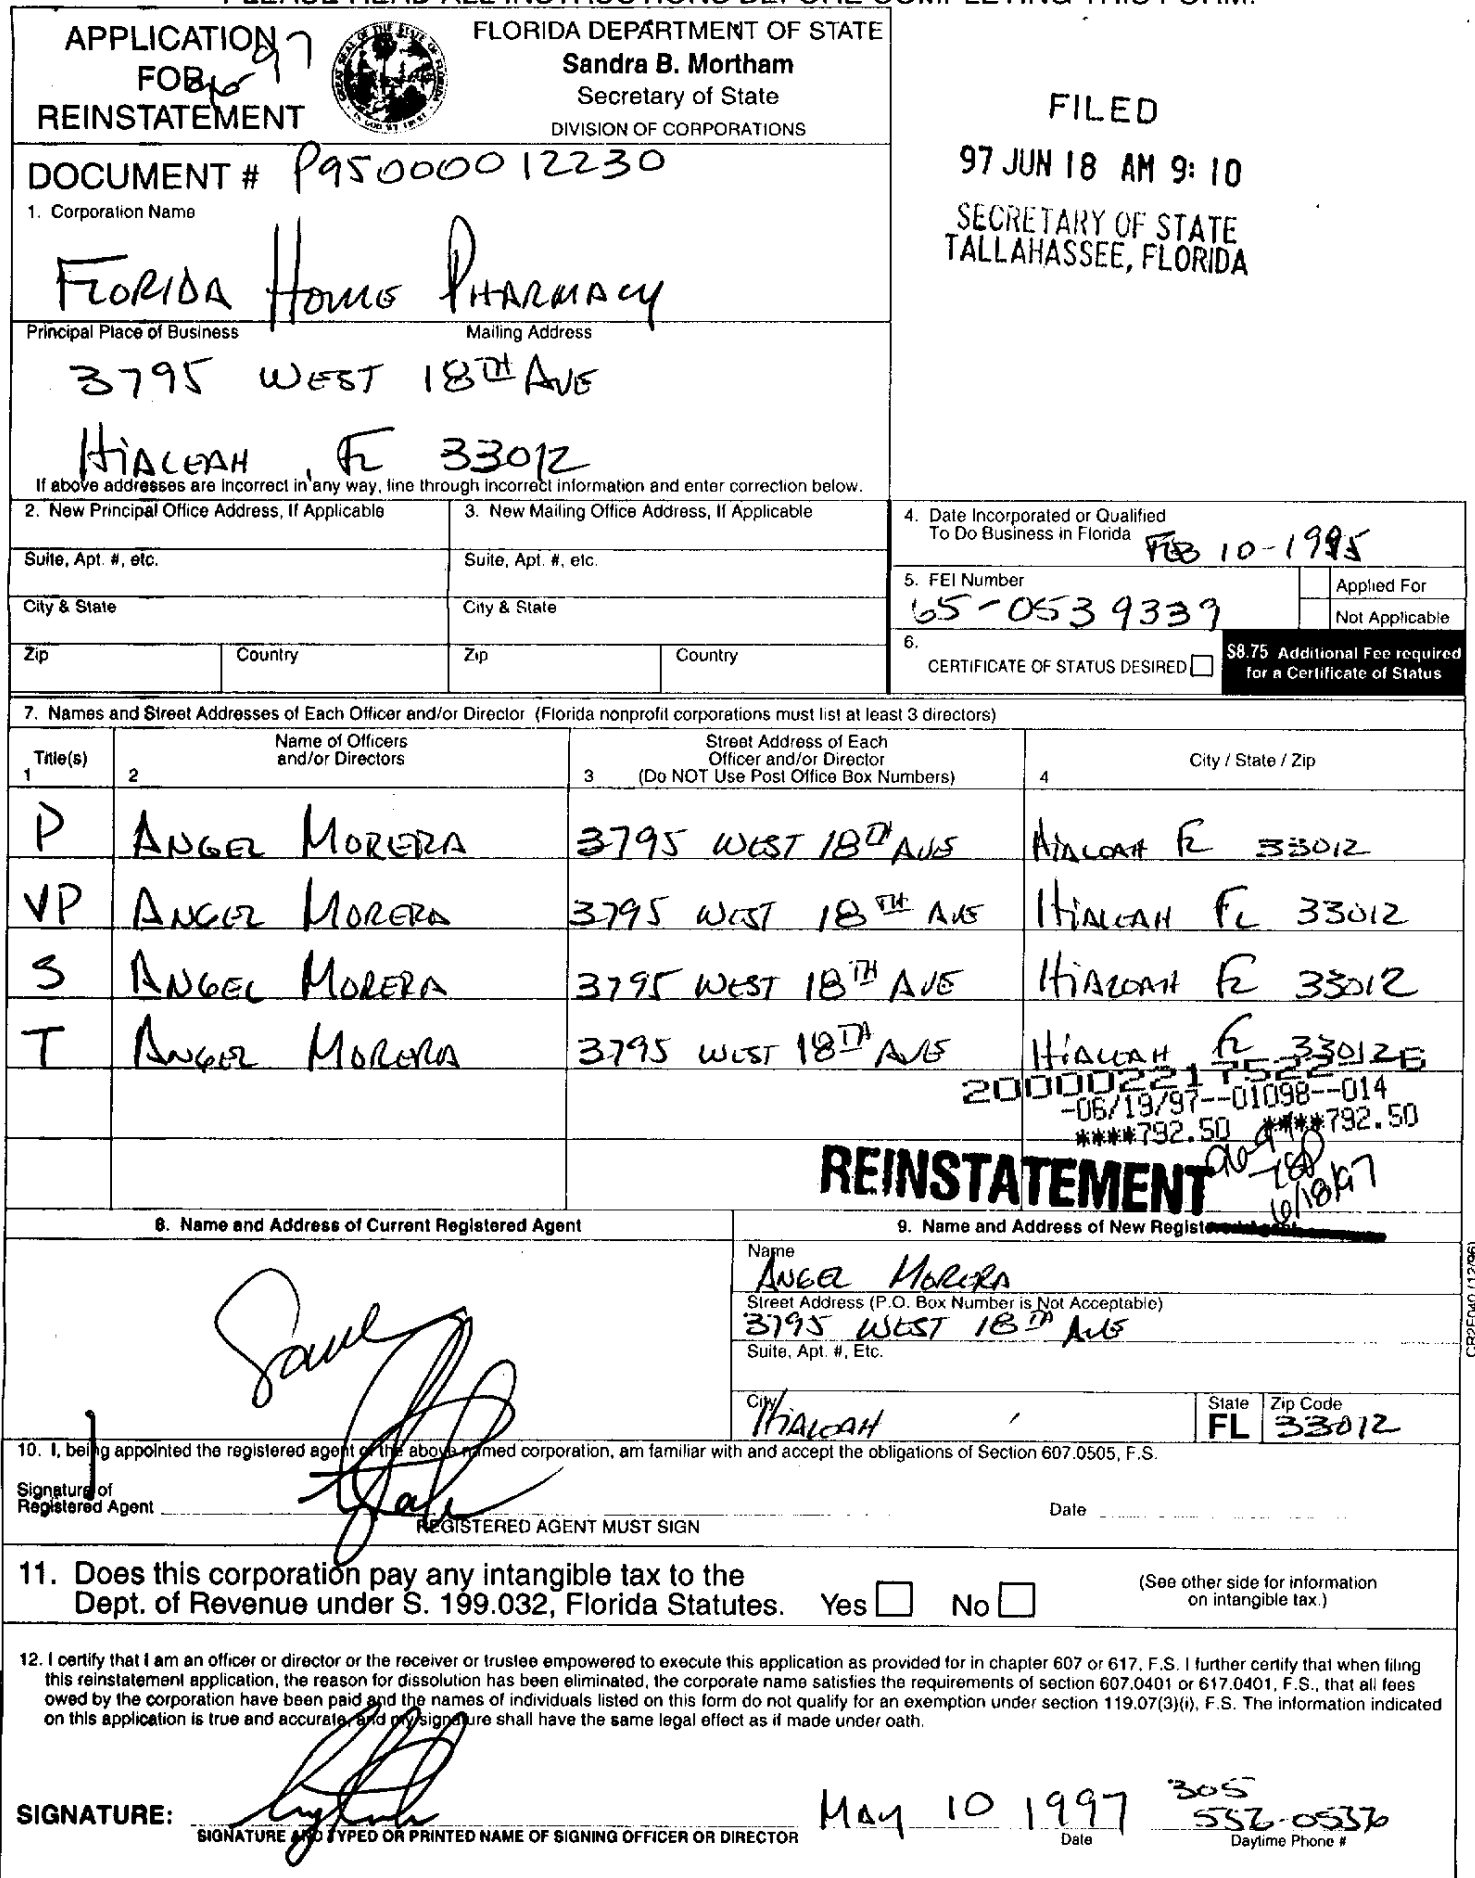 PLEASE READ ALL INSTRUCTIONS BEFORE COMPLETING THIS FORM.
APPLICATION
FOR
REINSTATEMENT
97
FLORIDA DEPARTMENT OF STATE
Sandra B. Mortham
Secretary of State
DIVISION OF CORPORATIONS
FILED
97 JUN 18 AM 9:10
SECRETARY OF STATE
TALLAHASSEE, FLORIDA
DOCUMENT # P95000012230
1. Corporation Name
FLORIDA HOME PHARMACY
Principal Place of Business Mailing Address
3795 WEST 18TH AVE
HIALEAH, FL 33012
If above addresses are incorrect in any way, line through incorrect information and enter correction below.
2. New Principal Office Address, If Applicable
3. New Mailing Office Address, If Applicable
Suite, Apt. #, etc.
Suite, Apt. #, etc.
City & State
City & State
Zip Country
Zip Country
4. Date Incorporated or Qualified
To Do Business in Florida FEB 10-1995
5. FEI Number
65-0539339
Applied For
Not Applicable
6.
CERTIFICATE OF STATUS DESIRED
$8.75 Additional Fee required
for a Certificate of Status
7. Names and Street Addresses of Each Officer and/or Director (Florida nonprofit corporations must list at least 3 directors)
Title(s)
1
Name of Officers
and/or Directors
2
Street Address of Each
Officer and/or Director
3 (Do NOT Use Post Office Box Numbers)
City / State / Zip
4
P ANGEL MORERA 3795 WEST 18TH AVE HIALEAH FL 33012
VP ANGEL MORERA 3795 WEST 18TH AVE HIALEAH FL 33012
S ANGEL MORERA 3795 WEST 18TH AVE HIALEAH FL 33012
T ANGEL MORERA 3795 WEST 18TH AVE HIALEAH FL 33012
-06/19/97--01098--014
****792.50 ****792.50
REINSTATEMENT
6/18/97
8. Name and Address of Current Registered Agent
Same
9. Name and Address of New Registered Agent
Name
ANGEL MORERA
Street Address (P.O. Box Number is Not Acceptable)
3795 WEST 18TH AVE
Suite, Apt. #, Etc.
City
HIALEAH
State
FL
Zip Code
33012
CR2E040 (12/96)
10. I, being appointed the registered agent of the above named corporation, am familiar with and accept the obligations of Section 607.0505, F.S.
Signature of
Registered Agent
Date
REGISTERED AGENT MUST SIGN
11. Does this corporation pay any intangible tax to the
Dept. of Revenue under S. 199.032, Florida Statutes. Yes No
(See other side for information
on intangible tax.)
12. I certify that I am an officer or director or the receiver or trustee empowered to execute this application as provided for in chapter 607 or 617, F.S. I further certify that when filing
this reinstatement application, the reason for dissolution has been eliminated, the corporate name satisfies the requirements of section 607.0401 or 617.0401, F.S., that all fees
owed by the corporation have been paid and the names of individuals listed on this form do not qualify for an exemption under section 119.07(3)(i), F.S. The information indicated
on this application is true and accurate, and my signature shall have the same legal effect as if made under oath.
SIGNATURE:
SIGNATURE AND TYPED OR PRINTED NAME OF SIGNING OFFICER OR DIRECTOR
MAY 10 1997
Date
305
556-0536
Daytime Phone #